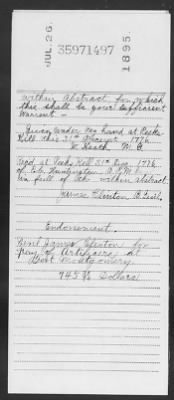 JUL. 26. 1895
35971497
within Abstract for which
this shall be your sufficient
Warrant —
Given under my hand at Peeks
Kill this 31st August 1776
W. Heath M. G.
Recd at Peeks Kill 31st Aug 1776
of
in full of the within abstract
James Clinton B. Genl.
Endorsement.
Genl James Clinton for
pay of Artificers at
Fort Montgomery
Dollars